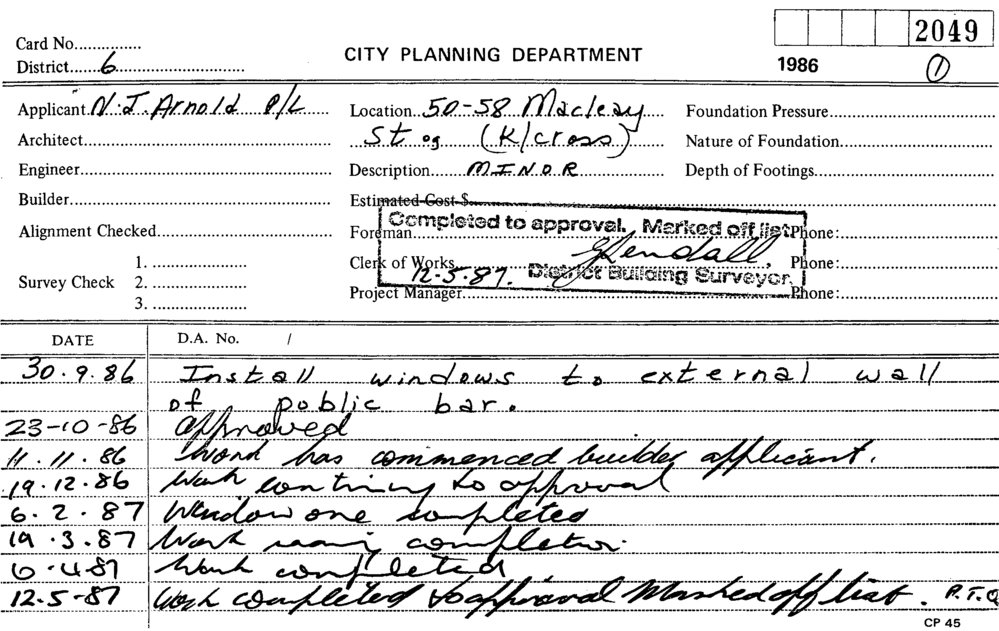 2049
Card No...............
CITY PLANNING DEPARTMENT
District......6
1986
1
Applicant N.J. Arnold P/L
Location 50-58 Macleay
Foundation Pressure
Architect
St (K/cross)
Nature of Foundation
Engineer
Description MINOR
Depth of Footings
Builder
Estimated Cost $
Completed to approval. Marked off list
Alignment Checked
Foreman
Phone:
Kendall.
Survey Check
1.
Clerk of Works
12.5.87. District Building Surveyor.
Phone:
2.
Project Manager
Phone:
3.
DATE
D.A. No. /
30.9.86 Install windows to external wall
of public bar.
23-10-86 approved
11.11.86 Work has commenced builder applicant.
19.12.86 Work continuing to approval
6.2.87 Window one completed
19.3.87 Work nearing completion.
6-4-87 Work completed
12.5-87 Work completed to approval Marked off list. P.T.O
CP 45